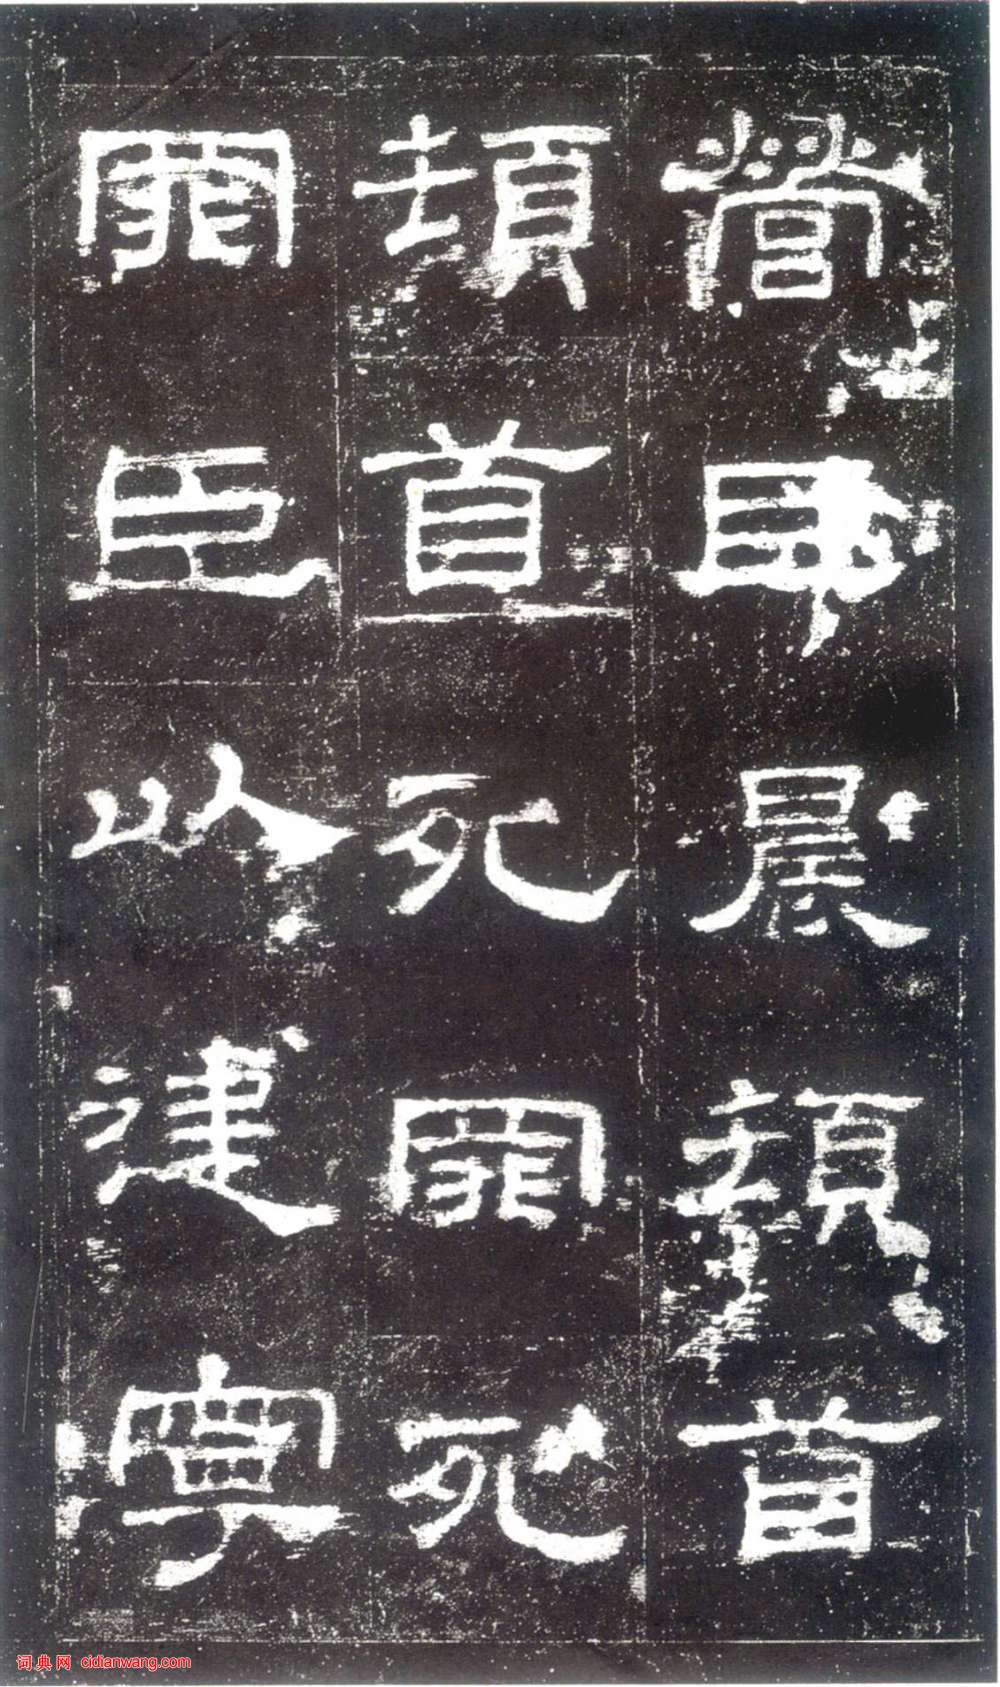 臣晨頓首
頓首死罪死
罪臣以建寧
词典网 cidianwang.com